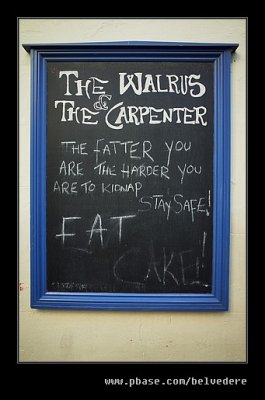 THE WALRUS
&
THE CARPENTER
THE FATTER YOU
ARE THE HARDER YOU
ARE TO KIDNAP
STAY SAFE!
EAT
CAKE!
www.pbase.com/belvedere